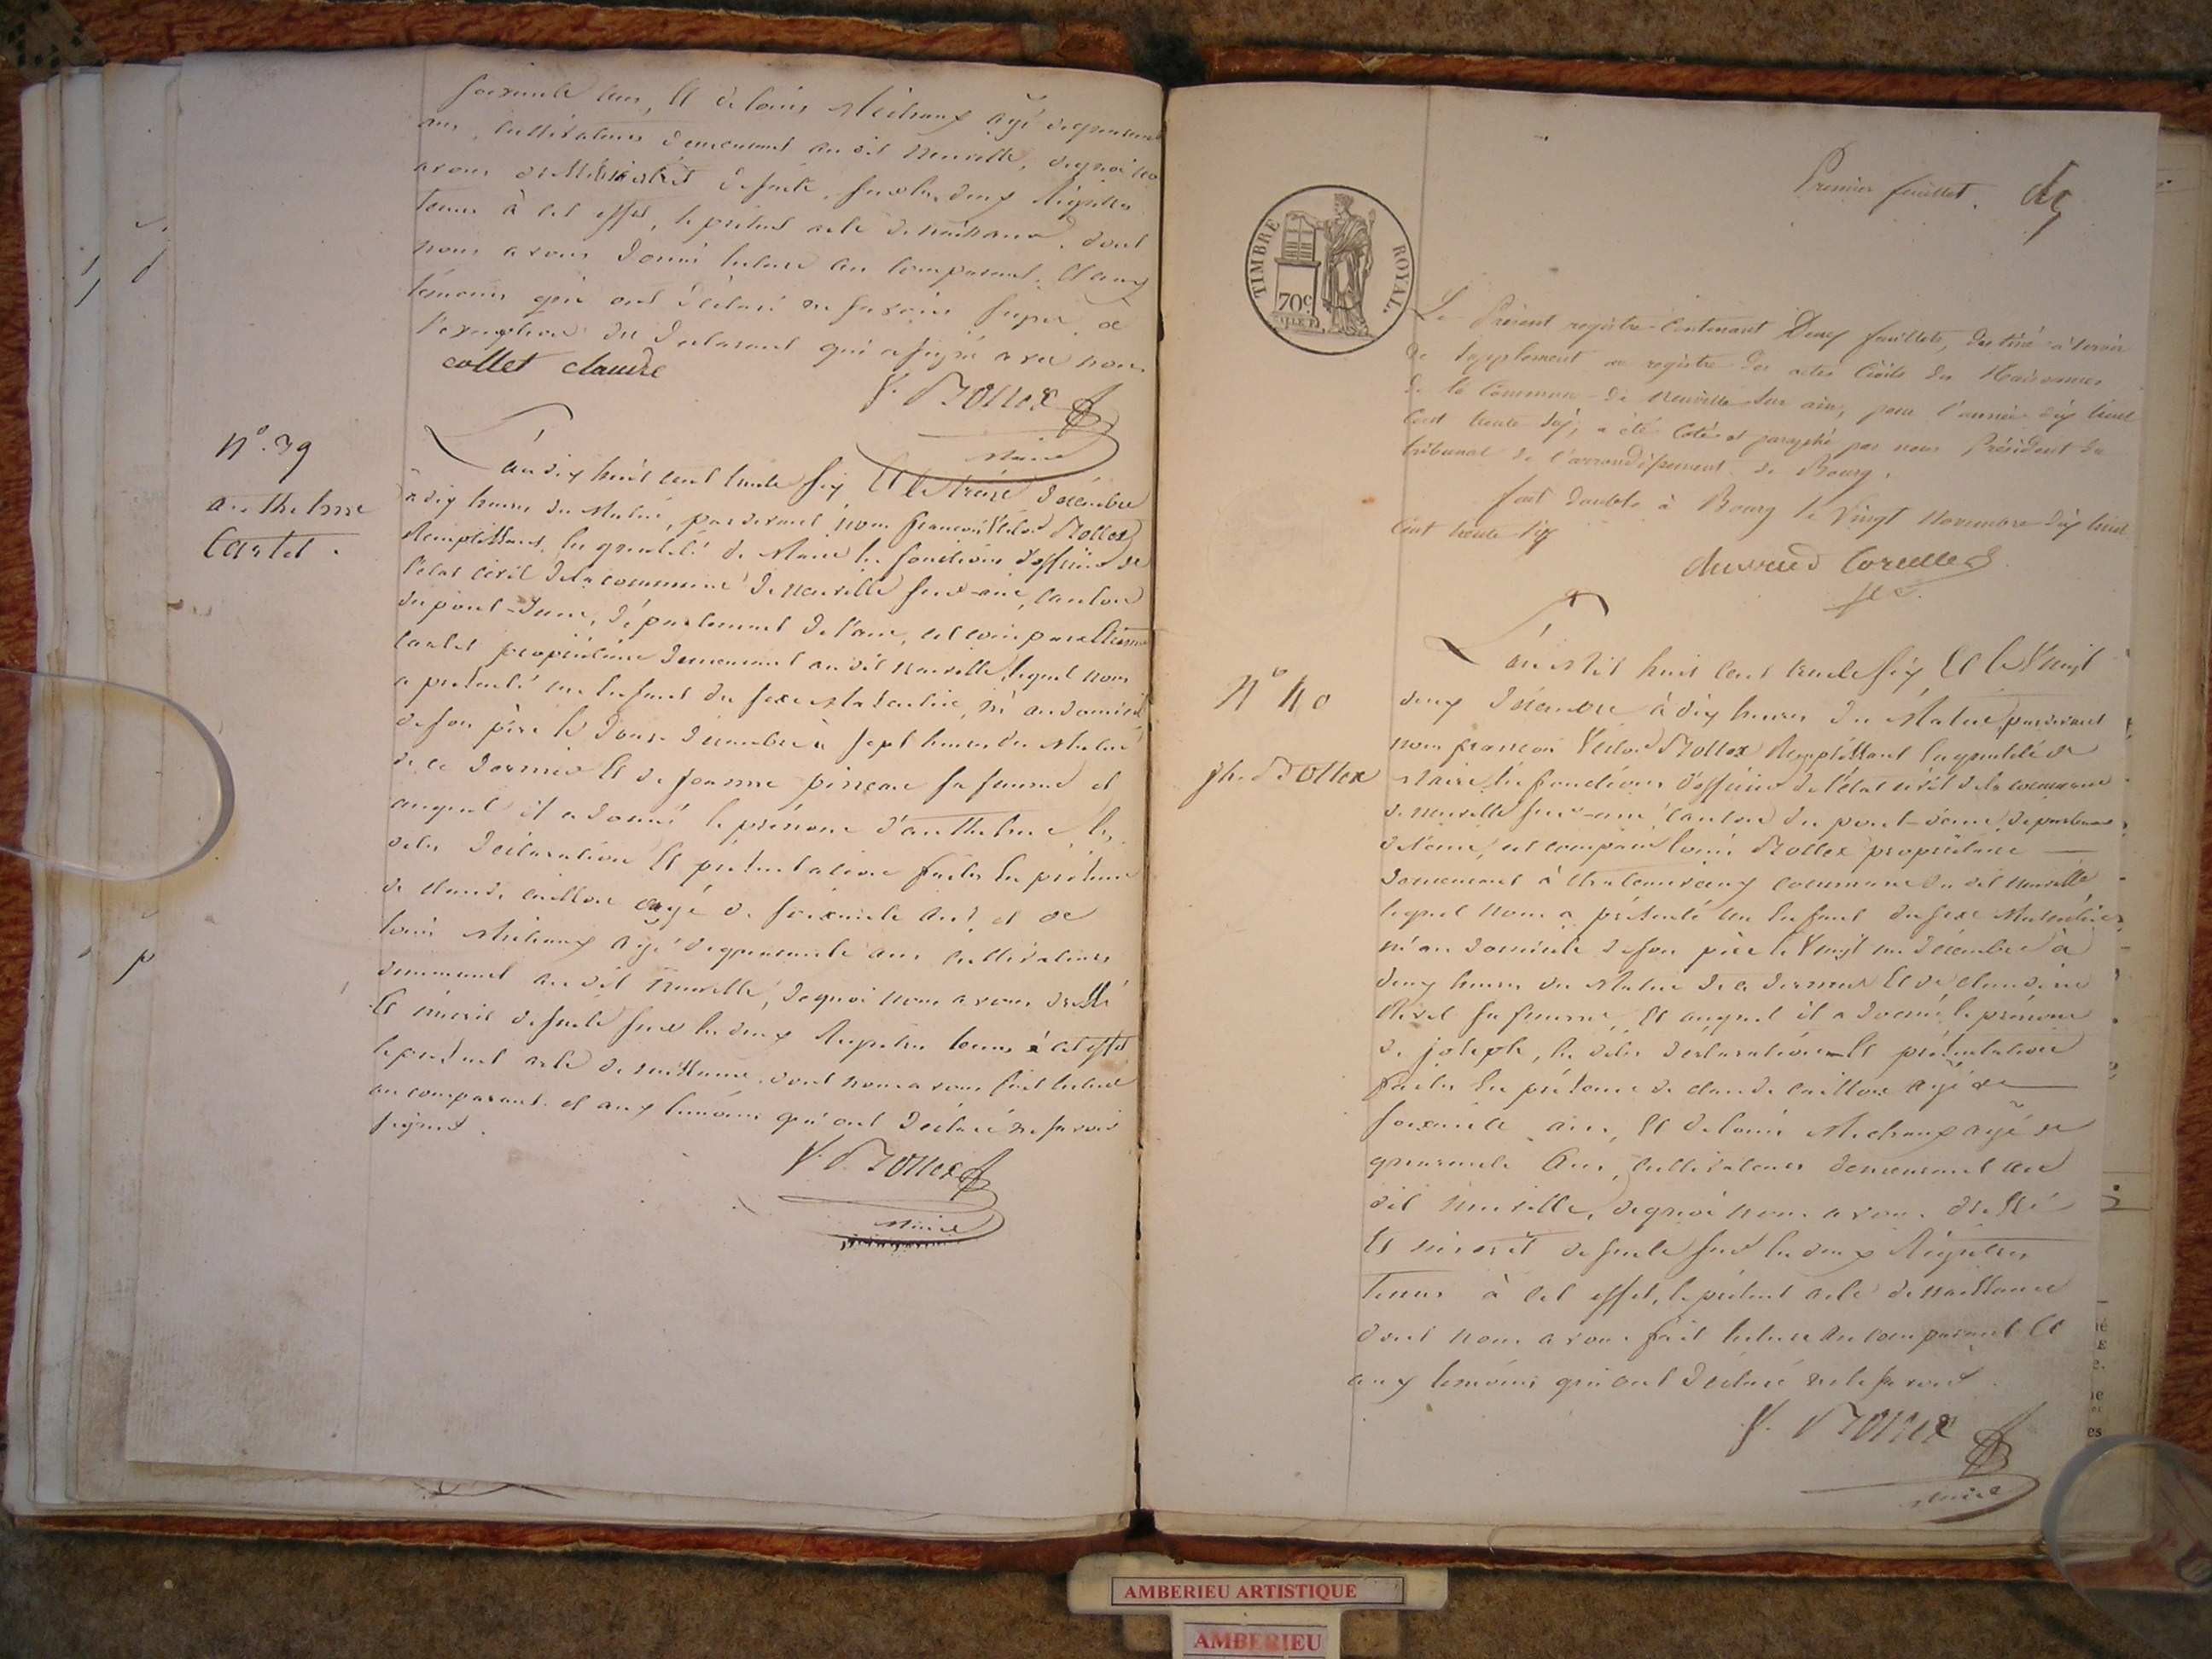 soixante ans, Et de louis Michaux agé de quarante
ans, cultivateurs demeurant au dit neuville, de quoi nous
avons dressé et inscrit de suite, sur les deux Registres
tenus à cet effet, le présent acte de naissance, dont
nous avons donné lecture au comparant, Et aux
témoins qui ont déclaré ne savoir signer, à
l'exception du declarant qui a signé avec nous
collet claude
V. Bollex
Maire
N° 39
anthelme
Cartet.
L'an dix huit cent trente six, Et le treize décembre
à dix heures du Matin, pardevant nous françois Bollex
Remplissant en qualité de Maire les fonctions d'officier de
l'état civil de la commune de neuville sur-ain, canton
du pont-d'ain, département de l'ain, est comparu
Cartet propriétaire demeurant au dit neuville, lequel nous
a présenté un Enfant du sexe Masculin, né au domicile
de son père le douze décembre à sept heures du Matin
de ce dernier Et de jeanne sa femme et
auquel il a donné le prénom d'anthelme, les
dites déclaration Et présentation faites En présence
de claude caillon agé de soixante ans, et de
louis Michaux agé de quarante ans cultivateurs
demeurant au dit neuville, de quoi nous avons dressé
Et inscrit de suite sur les deux Registres tenus à cet effet
le présent acte de naissance, dont nous avons fait lecture
au comparant et aux témoins qui ont déclaré ne savoir
signer.
V. Bollex
Maire
Premier feuillet.
TIMBRE ROYAL.
70c
Le Présent registre contenant Deux feuillets, destiné à servir
de Supplement au registre des actes Civils des Naissances
de la Commune de Neuville sur ain, pour l'année dix huit
Cent trente Six, a été Coté et paraphé par nous Président du
tribunal de l'arrondissement de Bourg.
fait double à Bourg le Vingt Novembre dix huit
Cent trente Six
N° 40
jh. Bollex
L'an Mil huit cent trente six Et le Vingt
deux décembre à dix heures du Matin pardevant
nous françois Bollex Remplissant En qualité de
Maire les fonctions d'officier de l'état civil de la commune
de neuville sur-ain, canton du pont-d'ain, departement
de l'ain, est comparu louis Bollex propriétaire
demeurant à commune du dit neuville,
lequel nous a présenté un Enfant du sexe Masculin,
né au domicile de son père le Vingt un décembre à
deux heures du Matin de ce dernier Et de claudine
sa femme, Et auquel il a donné le prénom
de joseph, les dites déclaration Et présentation
faites En présence de claude caillon agé de
soixante ans, Et de louis Michaux agé de
quarante Ans, cultivateurs demeurant au
dit neuville, de quoi nous avons dressé
Et inscrit de suite sur les deux Registres
tenus à cet effet, le présent acte de naissance
dont nous avons fait lecture au comparant Et
aux témoins qui ont déclaré ne le savoir.
V. Bollex
Maire
AMBERIEU ARTISTIQUE
AMBERIEU